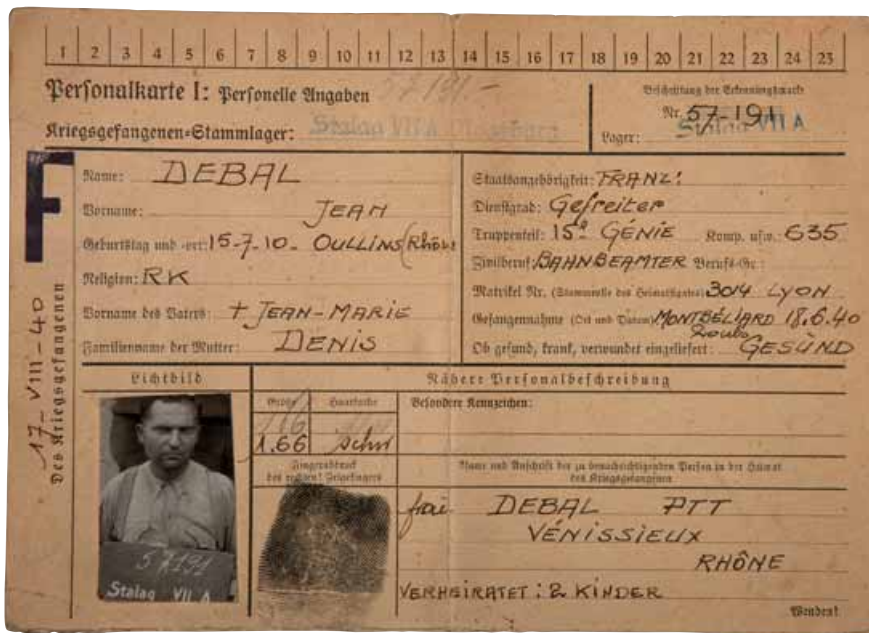 1 2 3 4 5 6 7 8 9 10 11 12 13 14 15 16 17 18 19 20 21 22 23 24 25
57191.-
Personalkarte I: Personelle Angaben
Kriegsgefangenen-Stammlager: Stalag VII A Moosburg
Beschriftung der Erkennungsmarke
Nr. 57-191
Lager: Stalag VII A
F
17-VIII-40
Des Kriegsgefangenen
Name: DEBAL
Vorname: JEAN
Geburtstag und -ort: 15-7-10- OULLINS (Rhône
Religion: RK
Vorname des Vaters: + JEAN-MARIE
Familienname der Mutter: DENIS
Staatsangehörigkeit: FRANZ:
Dienstgrad: Gefreiter
Truppenteil: 15e GÉNIE Komp. usw.: 635
Zivilberuf: BAHNBEAMTER Berufs-Gr.:
Matrikel Nr. (Stammrolle des Heimatstaates) 3014 LYON
Gefangennahme (Ort und Datum) MONTBÉLIARD 18.6.40
Doubs
Ob gesund, krank, verwundet eingeliefert: GESUND
Lichtbild
57191
Stalag VII A
Nähere Personalbeschreibung
Größe Haarfarbe
1.66 schw
Besondere Kennzeichen:
Fingerabdruck
des rechten! Zeigefingers
Name und Anschrift der zu benachrichtigenden Person in der Heimat
des Kriegsgefangenen
DEBAL PTT
VÉNISSIEUX
RHÔNE
VERHEIRATET: 2 KINDER
Wenden!